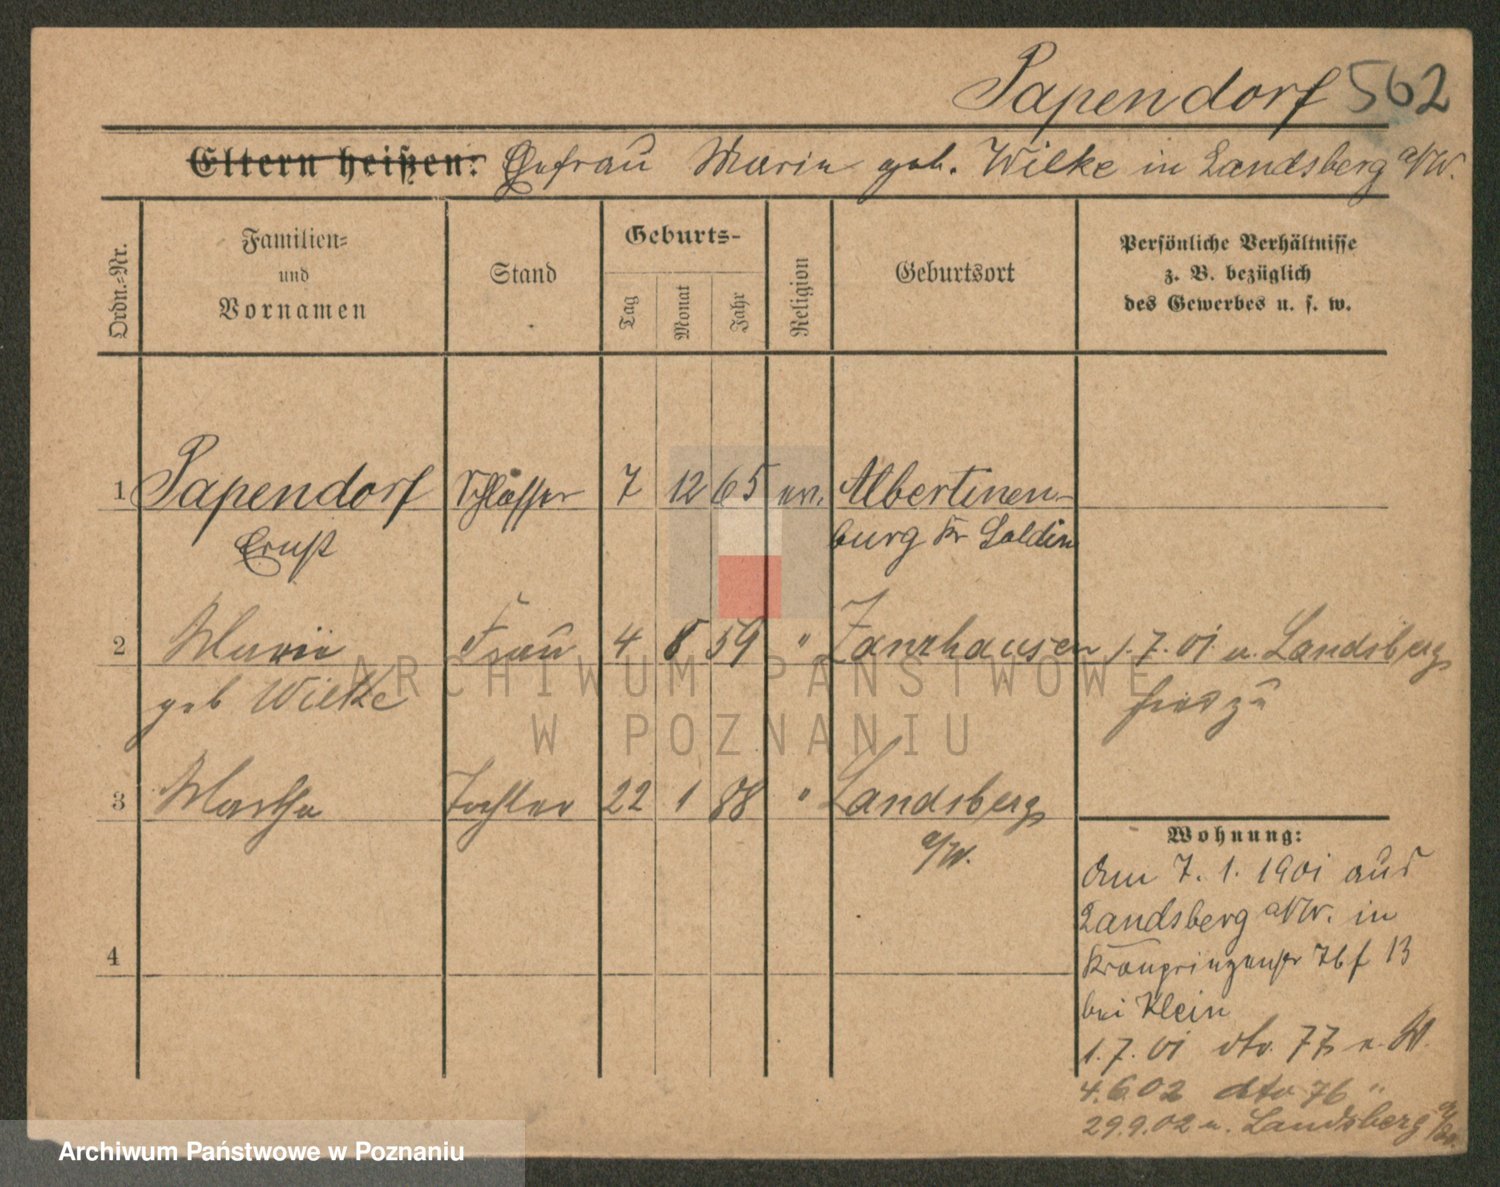 Papendorf 562
Eltern heißen: Ehefrau Marie geb. Wilke in Landsberg a/W.
Ordn.-Nr.
Familien-
und
Vornamen
Stand
Geburts-
Tag
Monat
Jahr
Religion
Geburtsort
Persönliche Verhältnisse
z. B. bezüglich
des Gewerbes u. s. w.
1 Papendorf Schlosser 7 12 65 ev. Albertinen-
Ernst burg Kr Soldin
2 Marie Frau 4 8 59 " Zanzhausen 1.7.01 v. Landsberg
geb Wilke
hierzu
3 Martha Tochter 22 1 88 " Landsberg
a/W.
Wohnung:
Am 7. 1. 1901 aus
Landsberg a/W. in
Kronprinzenstr 76 f 13
bei Klein
1.7.01 dto. 77
4
4.6.02 dto 76 "
29.9.02 n. Landsberg a/W.
ARCHIWUM PAŃSTWOWE
W POZNANIU
Archiwum Państwowe w Poznaniu